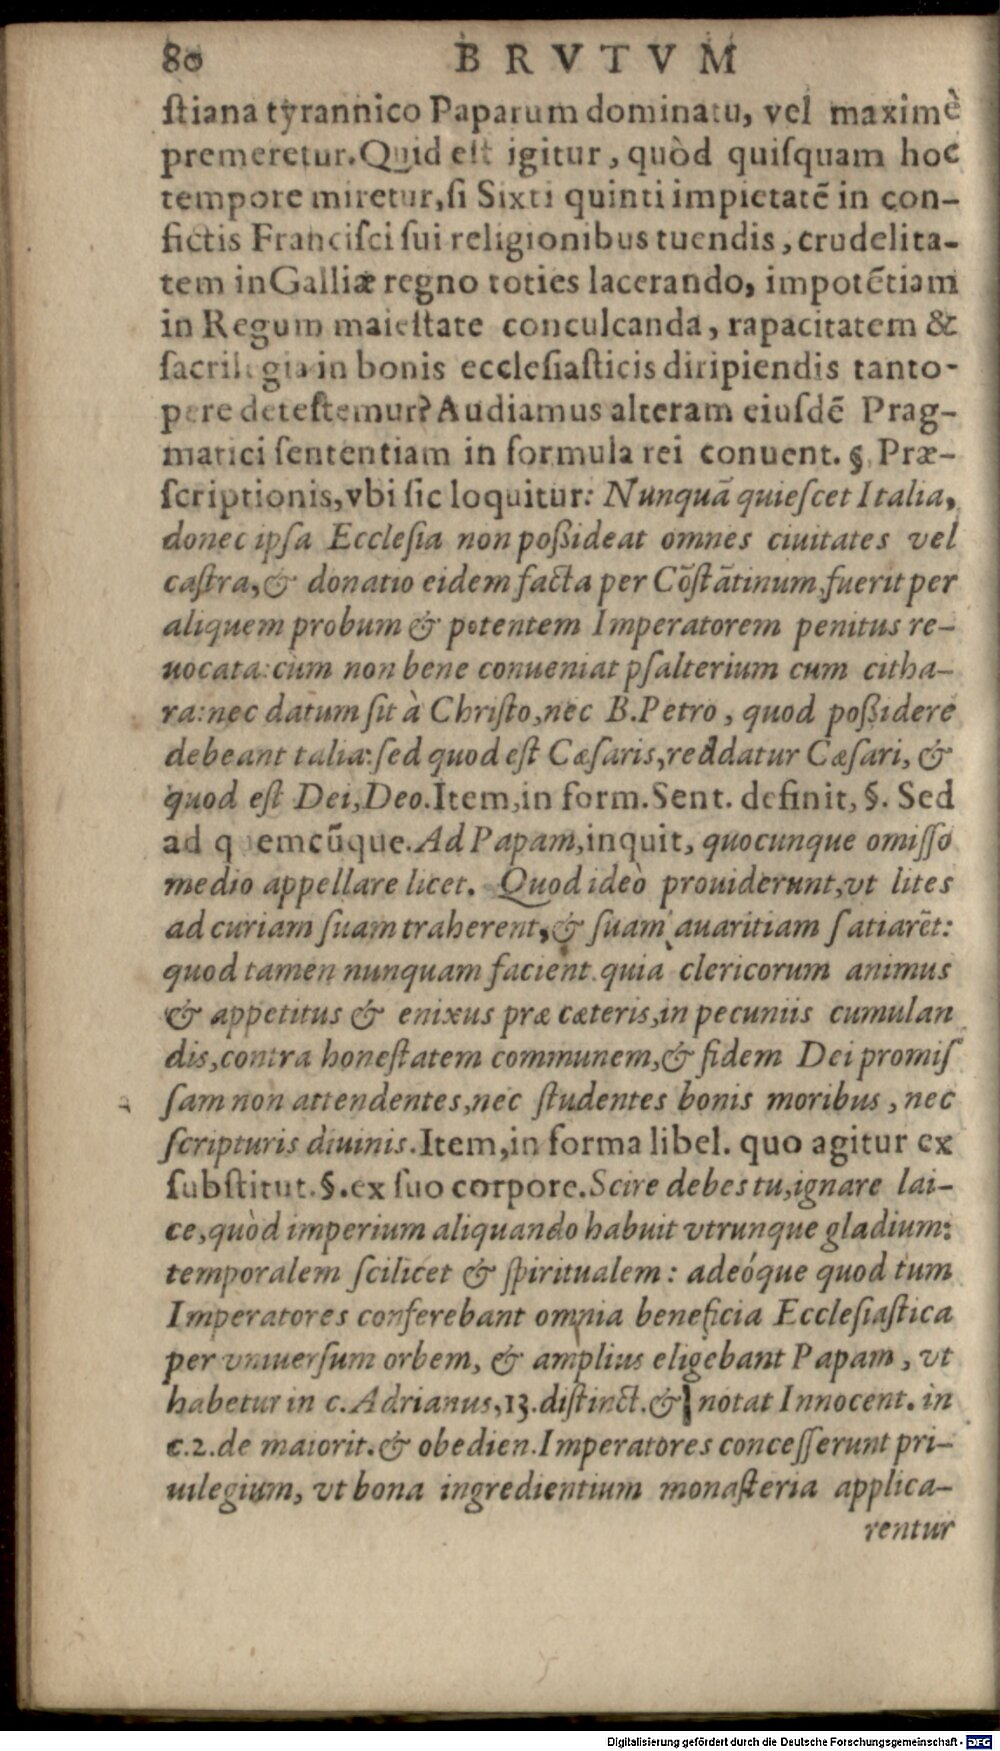 80 BRVTVM
ſtiana tyrannico Paparum dominatu, vel maximè
premeretur. Quid eſt igitur, quòd quiſquam hoc
tempore miretur, ſi Sixti quinti impietatē in con-
fictis Franciſci ſui religionibus tuendis, crudelita-
tem in Galliæ regno toties lacerando, impotētiam
in Regum maieſtate conculcanda, rapacitatem &
ſacrilegia in bonis eccleſiaſticis diripiendis tanto-
pere deteſtemur? Audiamus alteram eiuſdē Prag-
matici ſententiam in formula rei conuent. §. Præ-
ſcriptionis, vbi ſic loquitur: Nunquã quieſcet Italia,
donec ipſa Eccleſia non poßideat omnes ciuitates vel
caſtra, & donatio eidem facta per Cōſtãtinum, fuerit per
aliquem probum & potentem Imperatorem penitus re-
uocata: cùm non bene conueniat pſalterium cum citha-
ra: nec datum ſit à Chriſto, nec B. Petro, quod poßidere
debeant talia: ſed quod eſt Cæſaris, reddatur Cæſari, &
quod eſt Dei, Deo. Item, in form. Sent. definit, §. Sed
ad quemcūque. Ad Papam, inquit, quocunque omiſſo
medio appellare licet. Quod ideò prouiderunt, vt lites
ad curiam ſuam traherent, & ſuam auaritiam ſatiarēt:
quod tamen nunquam facient. quia clericorum animus
& appetitus & enixus præ cæteris, in pecuniis cumulan
dis, contra honeſtatem communem, & fidem Dei promiſ
ſam non attendentes, nec ſtudentes bonis moribus, nec
ſcripturis diuinis. Item, in forma libel. quo agitur ex
ſubſtitut. §. ex ſuo corpore. Scire debes tu, ignare lai-
ce, quòd imperium aliquando habuit vtrunque gladium:
temporalem ſcilicet & ſpiritualem: adeóque quod tum
Imperatores conferebant omnia beneficia Eccleſiaſtica
per vniuerſum orbem, & amplius eligebant Papam, vt
habetur in c. Adrianus, 13. diſtinct. & notat Innocent. in
c. 2. de maiorit. & obedien. Imperatores conceſſerunt pri-
uilegium, vt bona ingredientium monaſteria applica-
rentur
Digitalisierung gefördert durch die Deutsche Forschungsgemeinschaft - DFG